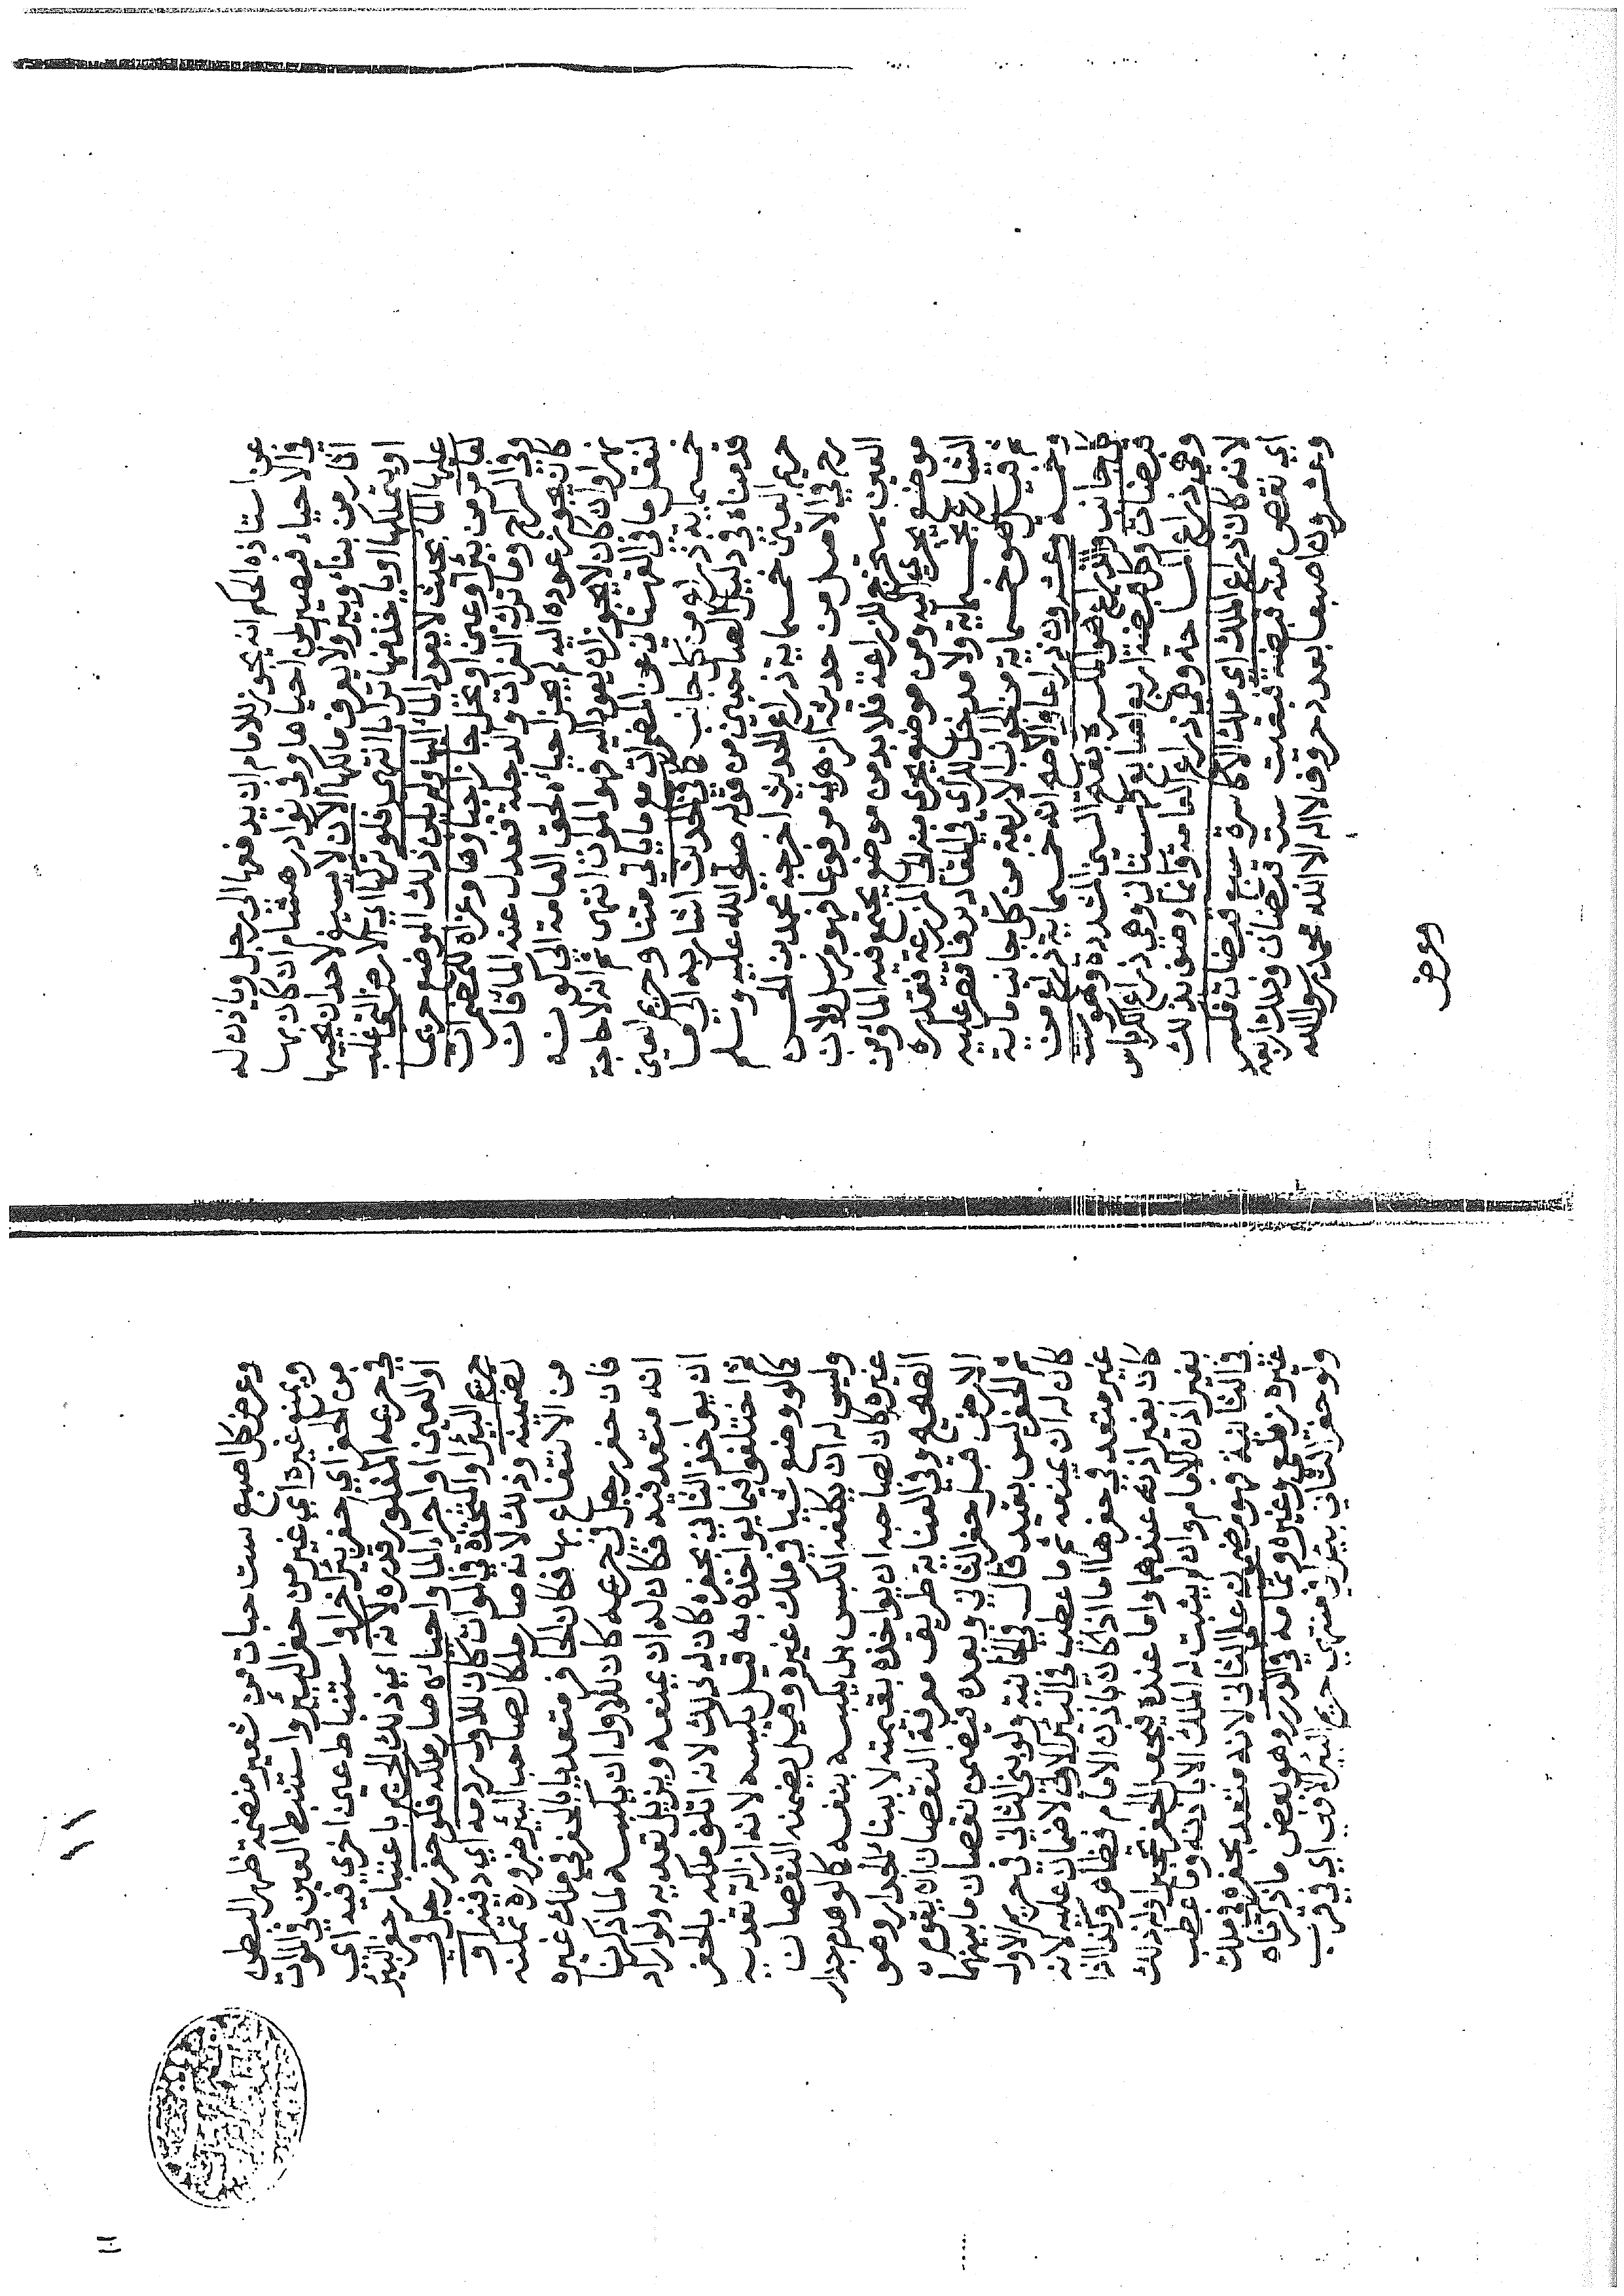 عن استاذه الحكم انه يجوز للامام ان يدفعها الى رجل وياذن له
في الاحياء فتصير لمن احياها وفي نوادر هشام ان كان بها
اثار من بناء وبير ولا يعرف مالكها الان لا يسع لاحد ان يحييها
او يتملكها او ياخذ منها ترابا انتهى فلو تركها اي الارض التي غلب
عليها الماء بحيث لا يعود الماء اليها ولم يكن ذلك الموضع حريما
لعامر من بئر او عين او نخل جاز احياوها وعزاه للمضمرات
وفي السراج وما ترك الفرات والدجلة فعدل عنه الماء فان
كان يجوز عوده اليه لم يجز احياءه لحق العامة الى كونه
نهرا وان كان لا يجوز ان يعود اليه فهو الموات انتهى ثم انه لا حاجة
لنقل ما في القهستاني عن المضمرات مع ما ياتي متنا وحريم العين
خمسماية ذراع من كل جانب كما في الحديث اشار به الى ما
قدمناه في دليل الصاحبين من قوله صلى الله عليه وسلم
حريم العين خمسماية ذراع الحديث اخرجه محمد بن الحسن
رح في الاصل من حديث الزهري مرفوعا فهو مرسل ولان
العين يستخرج للزراعة فلا بد من موضع يجتمع فيه الماء ومن
موضع يجري اليه ومن موضع يجري منه الى المزرعة فقدره
الشارع بخمسماية ولا مدخل للراي في المقادير فاقتصر عليه
ثم قيل هو خمسماية من الجوانب الاربعة من كل جانب ماية
وخمسة وعشرون ذراعا والاصح انه خمسماية ذراع من
كل جانب والذراع هو المكسرة بفتح السين المشددة وهو ست
قبضات وكل قبضة اربع اصابع كستاني وهي ذراع الكرباس
وهي ذراع المساحة وهي ذراع العامة وانما وصف بذلك
لانه كان ذراع الملك اي ملك الاكاسرة سبع قبضات فكسر
اي نقص منه قبضة فبقيت ست قبضات وذلك اربعة
وعشرون اصبعا بعدد حروف لا اله الا الله محمد رسول الله
وعرض
وعرض كل اصبع ست حبات من شعير منضمة ظهر البطن
ويمنع غيره اي غير من حفر البير واستنبط العين في الموات
من الحفر اي حفر بئر اخر او استنباط عين اخرى فيه اي
في حريمه المذكور قدره لانه اي ذلك الحريم باعتبار حفر البئر
او العين او اجراء الماء واحيائه صار ملكه فلو حفر رجل في
حريم البئر او الشجرة في الموات كان للاول ردمه اي دفنه او
تضمينه وذلك لانه صار ملكا لصاحب البئر ضرورة تمكنه
من الانتفاع بها فكان الحافر متعديا بالحفر في ملك غيره
فان حفر رجل في حريمه كان للاول ان يكبسه لما ذكرنا
انه متعد فيه فكان له ان يمنعه ويزيل تعديه ولو اراد
ان يواخذ الثاني بحفره كان له ذلك لانه اتلف ملكه بالحفر
ثم اختلفوا فيما يواخذه به قيل يكبسه لانه ازالة تعديه
كما لو وضع شيا في ملك غيره وقيل يضمنه النقصان
وليس له ان يكلفه الكبس بل يكبسه بنفسه كما لو هدم جدار
غيره كان لصاحبه ان يواخذه بقيمته لا ببناء الجدار وهو
الصحيح وفي العناية طريف معرفة النقصان ان يقوم
الارض قبل حفر الثاني وبعده فيضمن نقصان ما بينهما
ثم الحفر ليس بقيد قال في الخانية ولو بنى الثاني في حريم الاول
كان له ان يمنعه ثم ما عطب في البئر الاولى لا ضمان عليه لانه
غير متعد في حفرها اما اذا كان باذن الامام فظاهر وكذا اذا
كان بغير اذنه عندهما واما عنده فيجعل الحفر تحجيرا وله ذلك
بغير اذن الامام وان لم يثبت له الملك الا باذنه وما عطب
في الثانية فهو مضمون على الثاني لانه متعد بحفره في ملك
غيره زيلعي وغيره وتمامه في الدرر وهو بعض ما ذكرناه
ولو حفر الثاني بئرا في منتهى حريم البئر الاولى اي في قرب